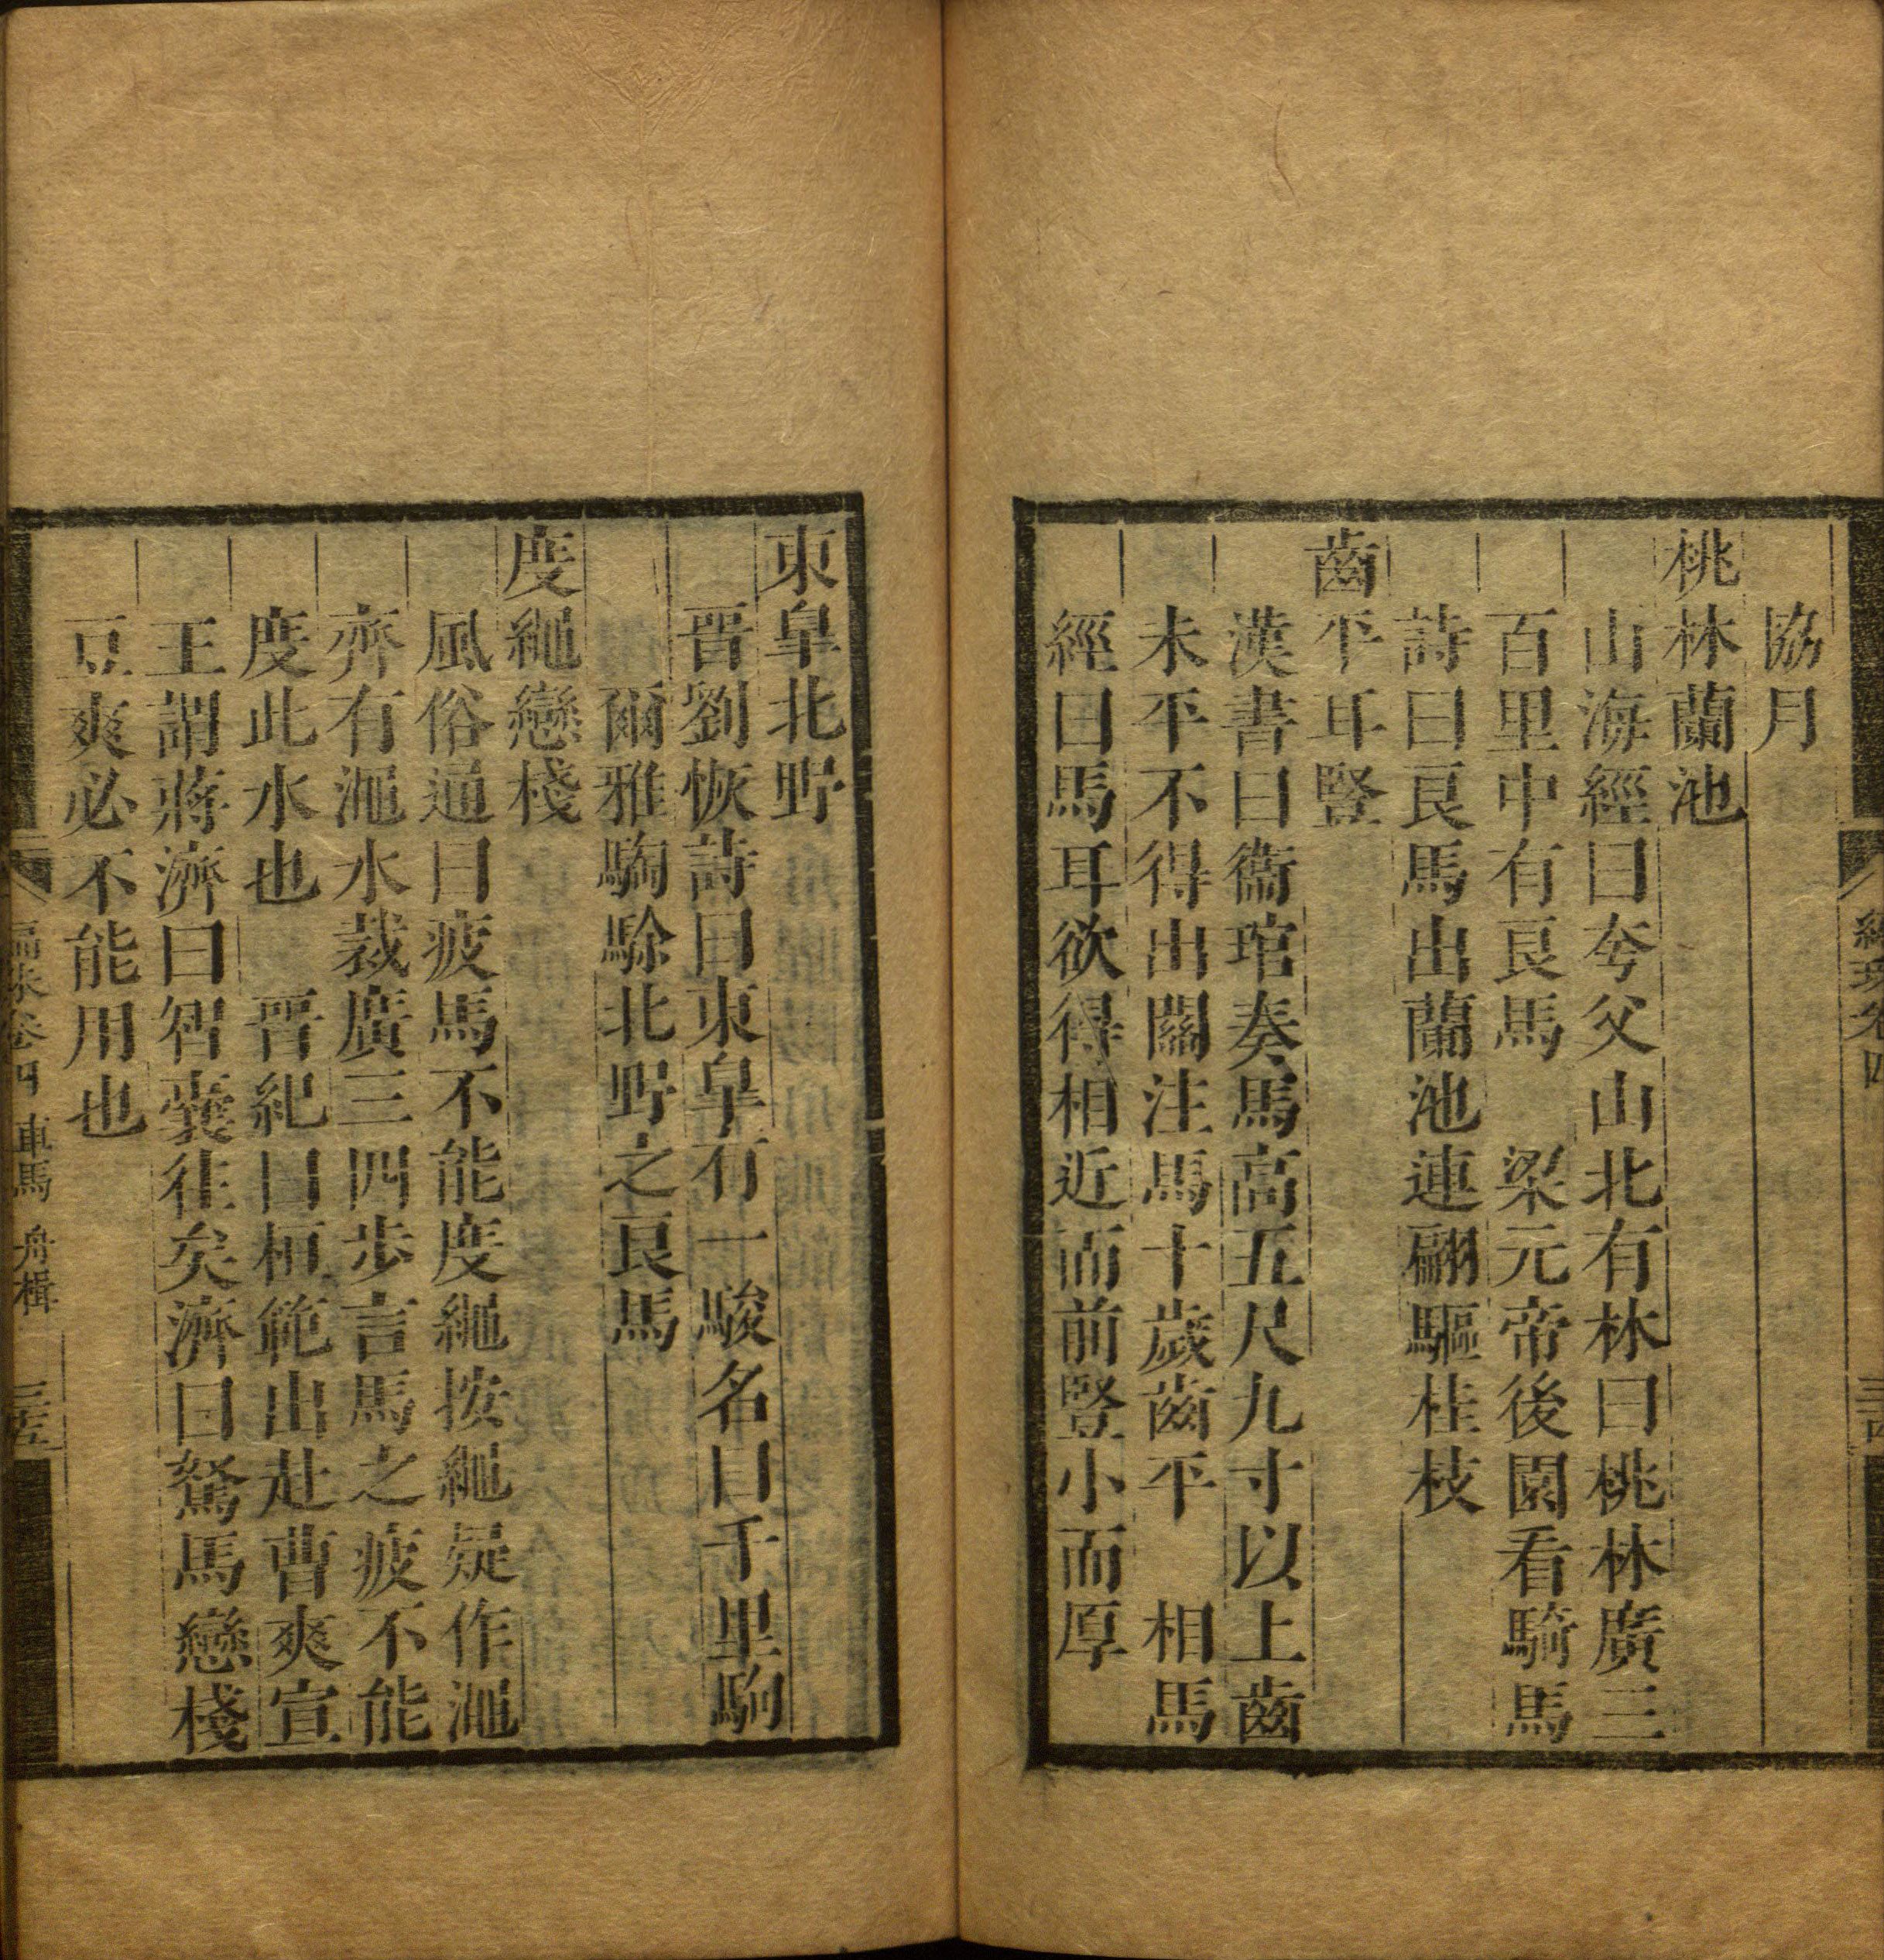 協月
桃林蘭池
山海經曰夸父山北有林曰桃林廣三
百里中有良馬　梁元帝後園看騎馬
詩曰良馬出蘭池連翩驅桂枝
齒平耳豎
漢書曰衞琯奏馬高五尺九寸以上齒
未平不得出關注馬十歲齒平　相馬
經曰馬耳欲得相近而前豎小而厚
東皐北野
晉劉恢詩曰東皐有一駿名曰千里駒
爾雅騊駼北野之良馬
度繩戀棧
風俗通曰疲馬不能度繩按繩疑作澠
齊有澠水裁廣三四步言馬之疲不能
度此水也　晉紀曰桓範出赴曹爽宣
王謂蔣濟曰智囊往矣濟曰駑馬戀棧
豆爽必不能用也
編珠卷四 車馬 舟楫